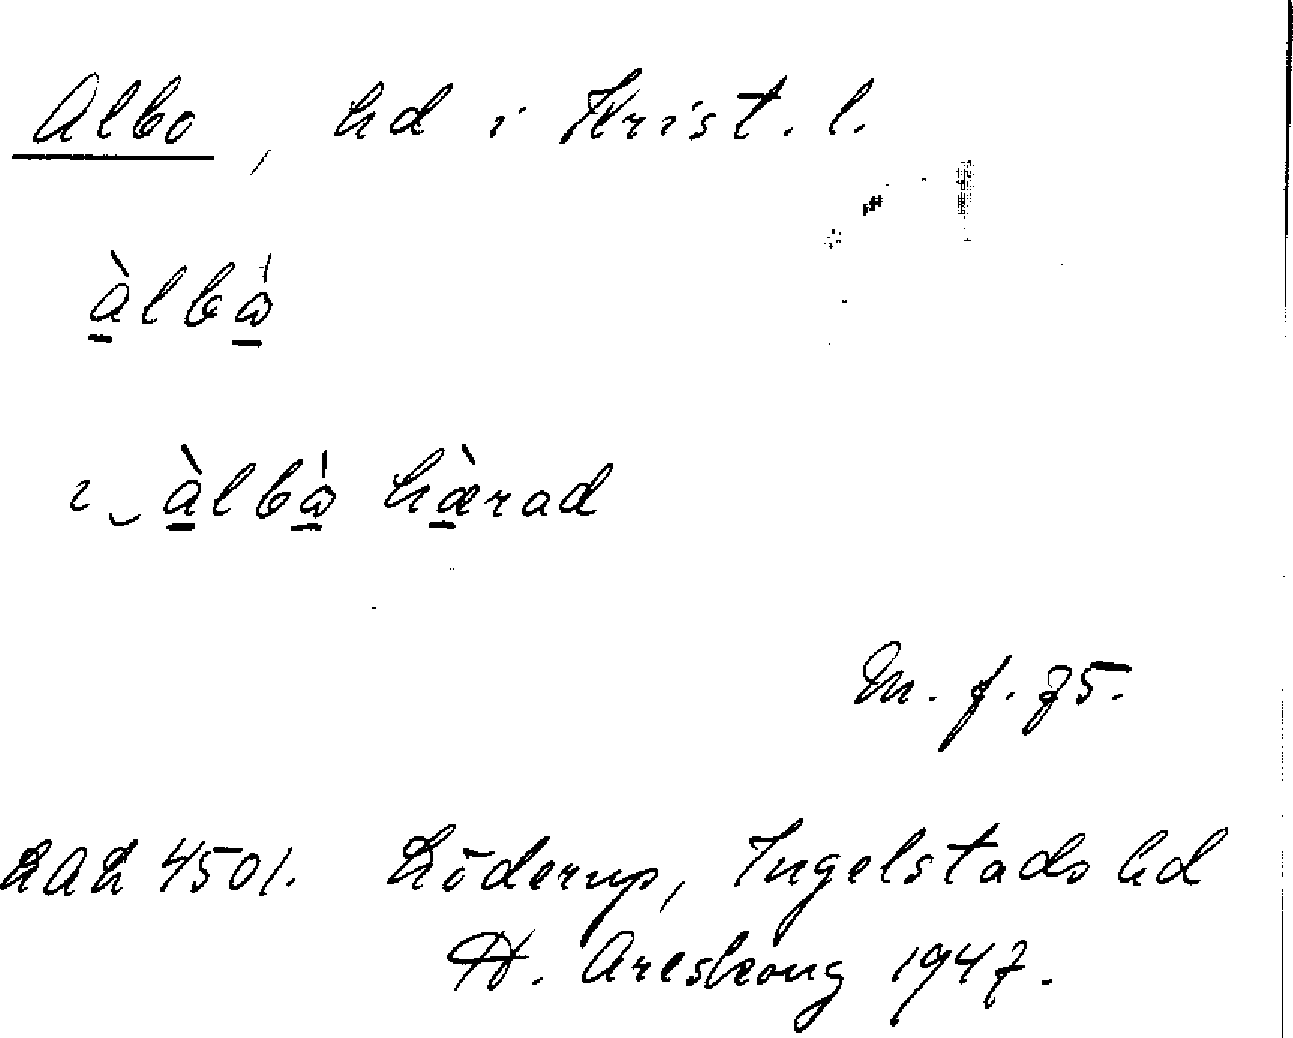 Albo, hd i Krist. l.
àlbω̍
i‿àlbω̍ hæ̀rad
M. f. 75.
LAL 4501. Löderup, Ingelstads hd
H. Areskoug 1947.